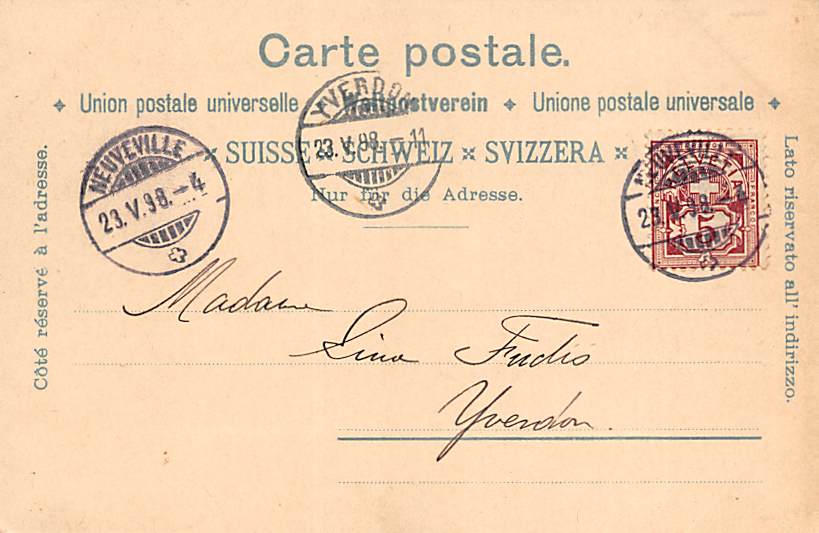 Carte postale.
✦ Union postale universelle Weltpostverein ✦ Unione postale universale ✦
SUISSE × SCHWEIZ × SVIZZERA ×
Nur für die Adresse.
Côté réservé à l'adresse.
Lato riservato all' indirizzo.
NEUVEVILLE
23.V.98.–4
YVERDON
23.V.98.–11
NEUVEVILLE
23.V.98.–4
HELVETIA
Madame
Lina Fuchs
Yverdon.